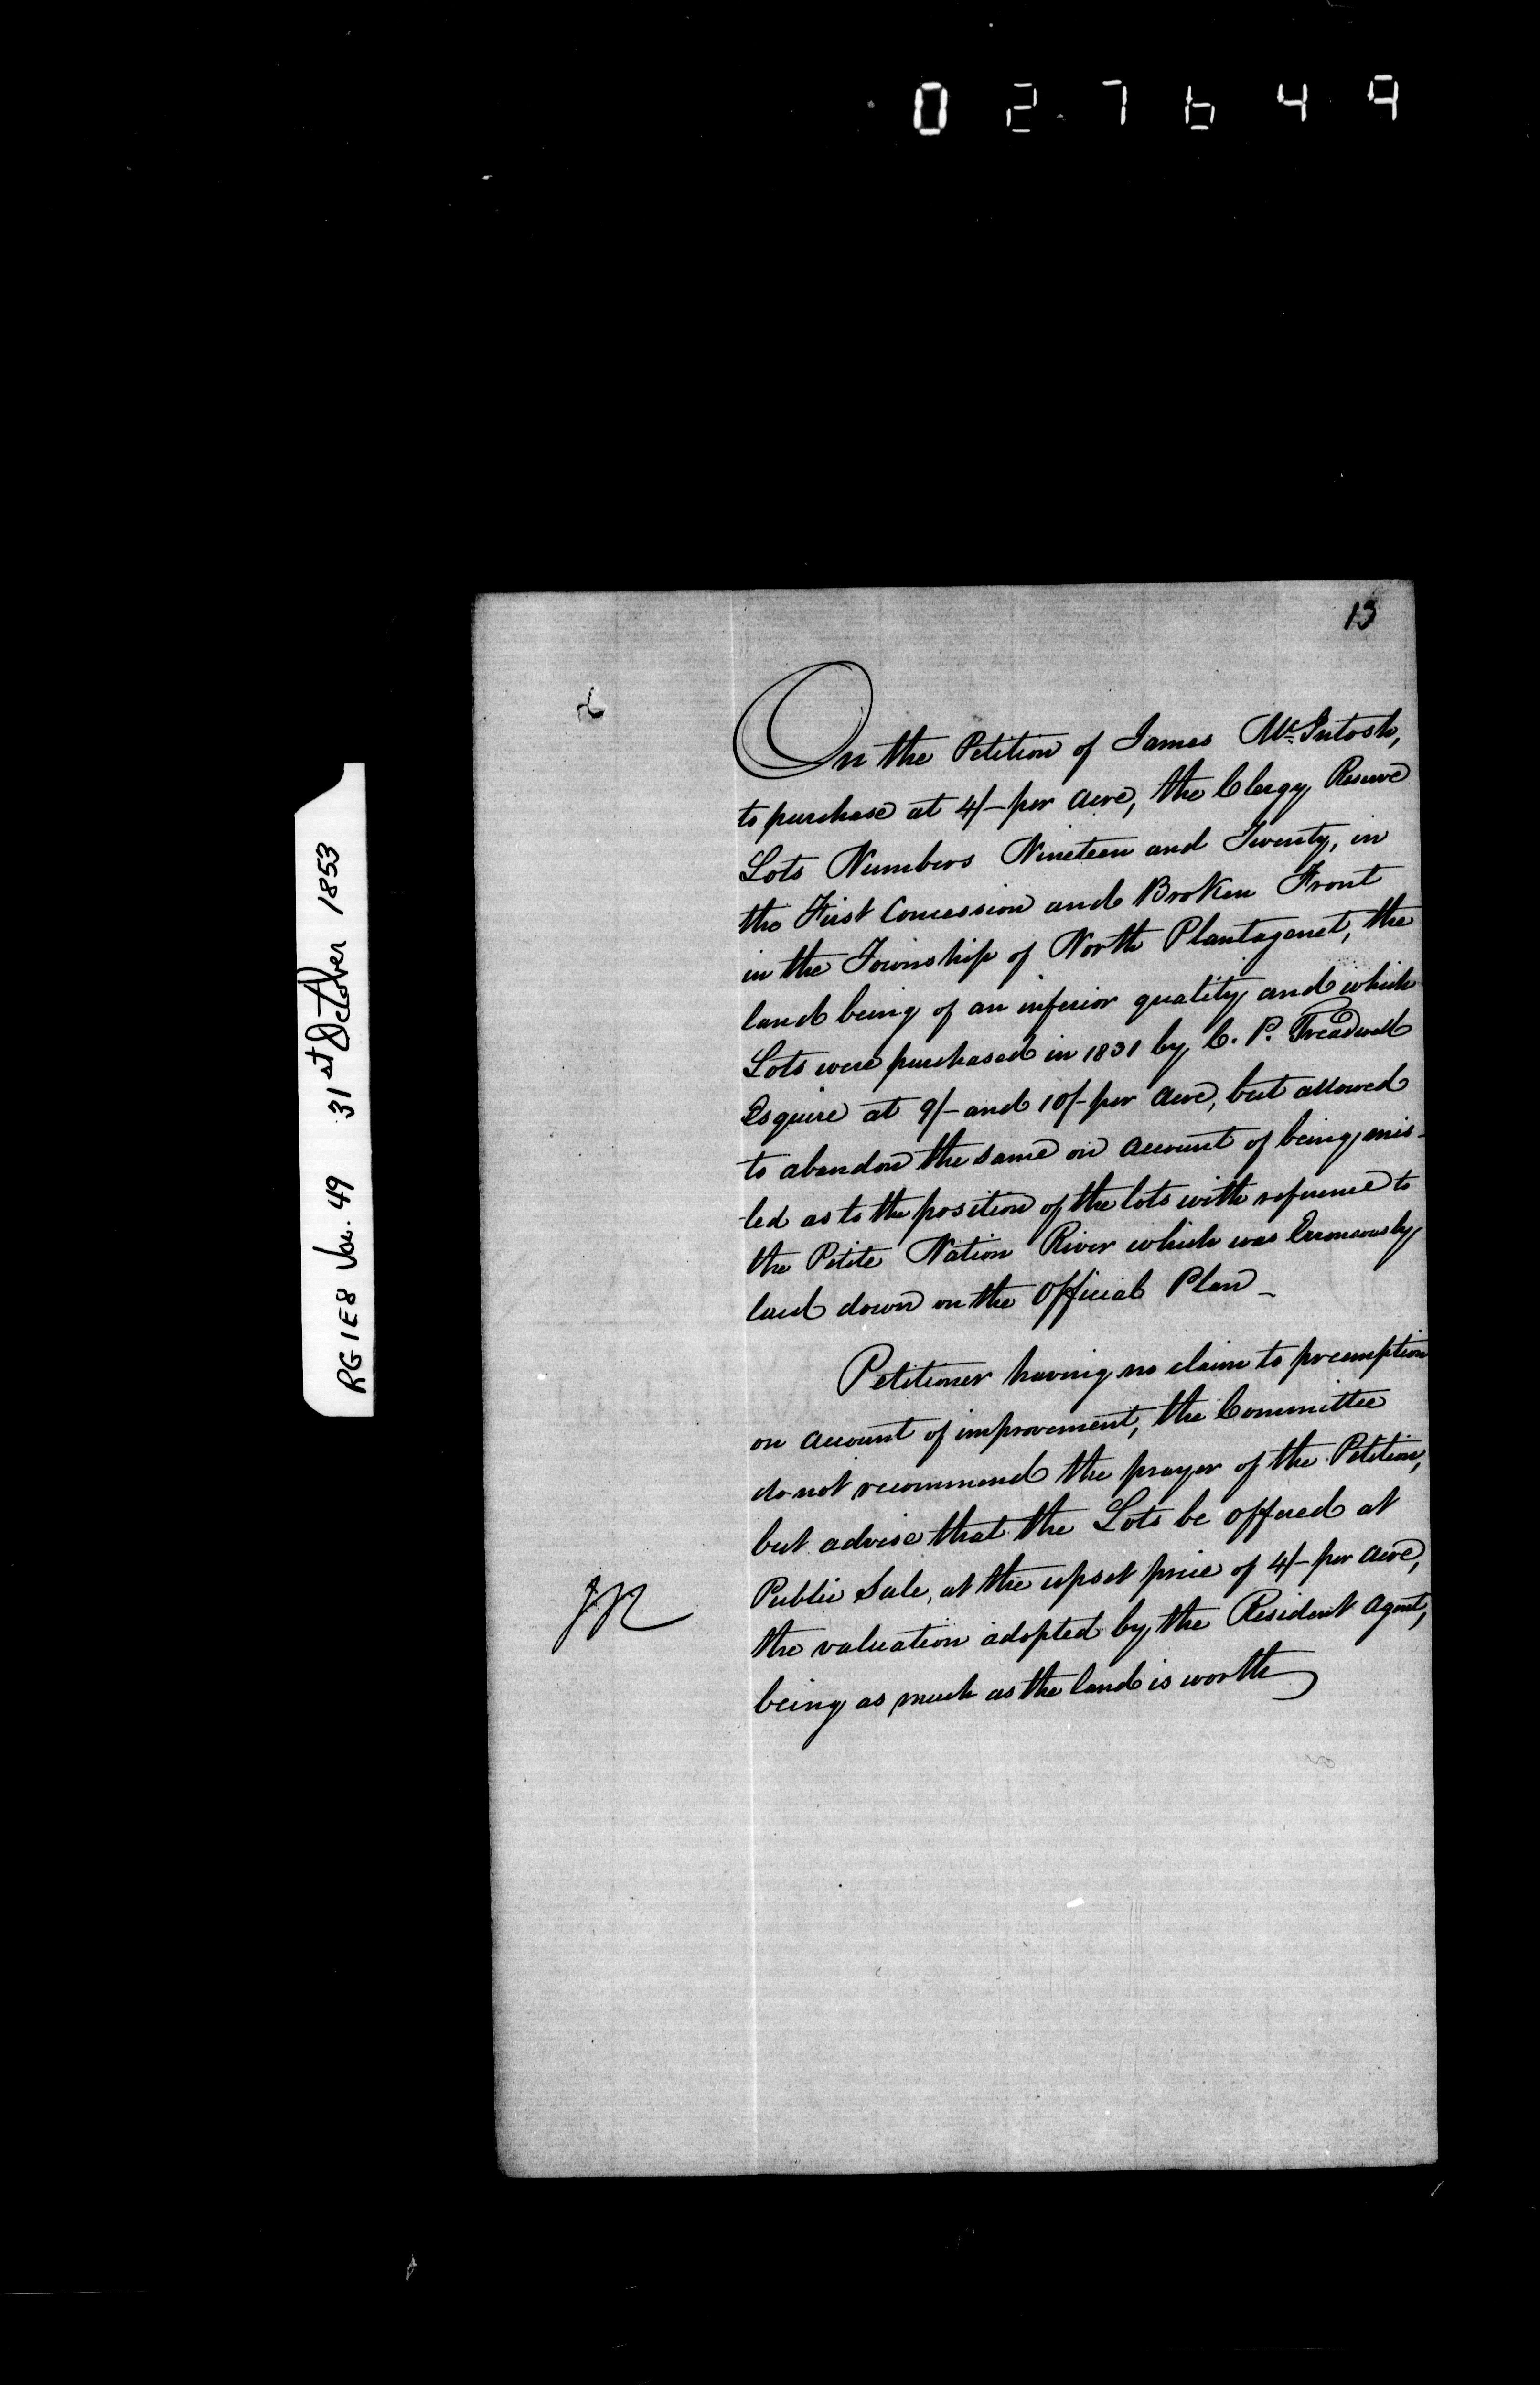 027649
RG 1 E 8 Vol. 49 31st October 1853
13
On the Petition of James McIntosh,
to purchase at 4/- per acre, the Clergy Reserve
Lots Numbers Nineteen and Twenty, in
the First Concession and Broken Front
in the Township of North Plantagenet, the
land being of an inferior quality and which
Lots were purchased in 1831 by C. P. Treadwell
Esquire at 9/- and 10/- per acre, but allowed
to abandon the same on account of being mis-
-led as to the position of the lots with reference to
the Petite Nation River which was Erroneously
laid down on the Official Plan _
Petitioner having no claim to preemption
on account of improvement, the Committee
do not recommend the prayer of the Petition,
but advise that the Lots be offered at
Public Sale, at the upset price of 4/- per acre,
the valuation adopted by the Resident Agent,
being as much as the land is worth